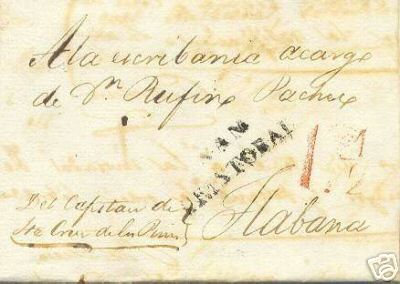 A la escribania a cargo
de Dn Rufino Pacheco
SAN
CRISTOBAL
1 1/2
Del Capitan de
Sta Cruz de los Pinos
Habana